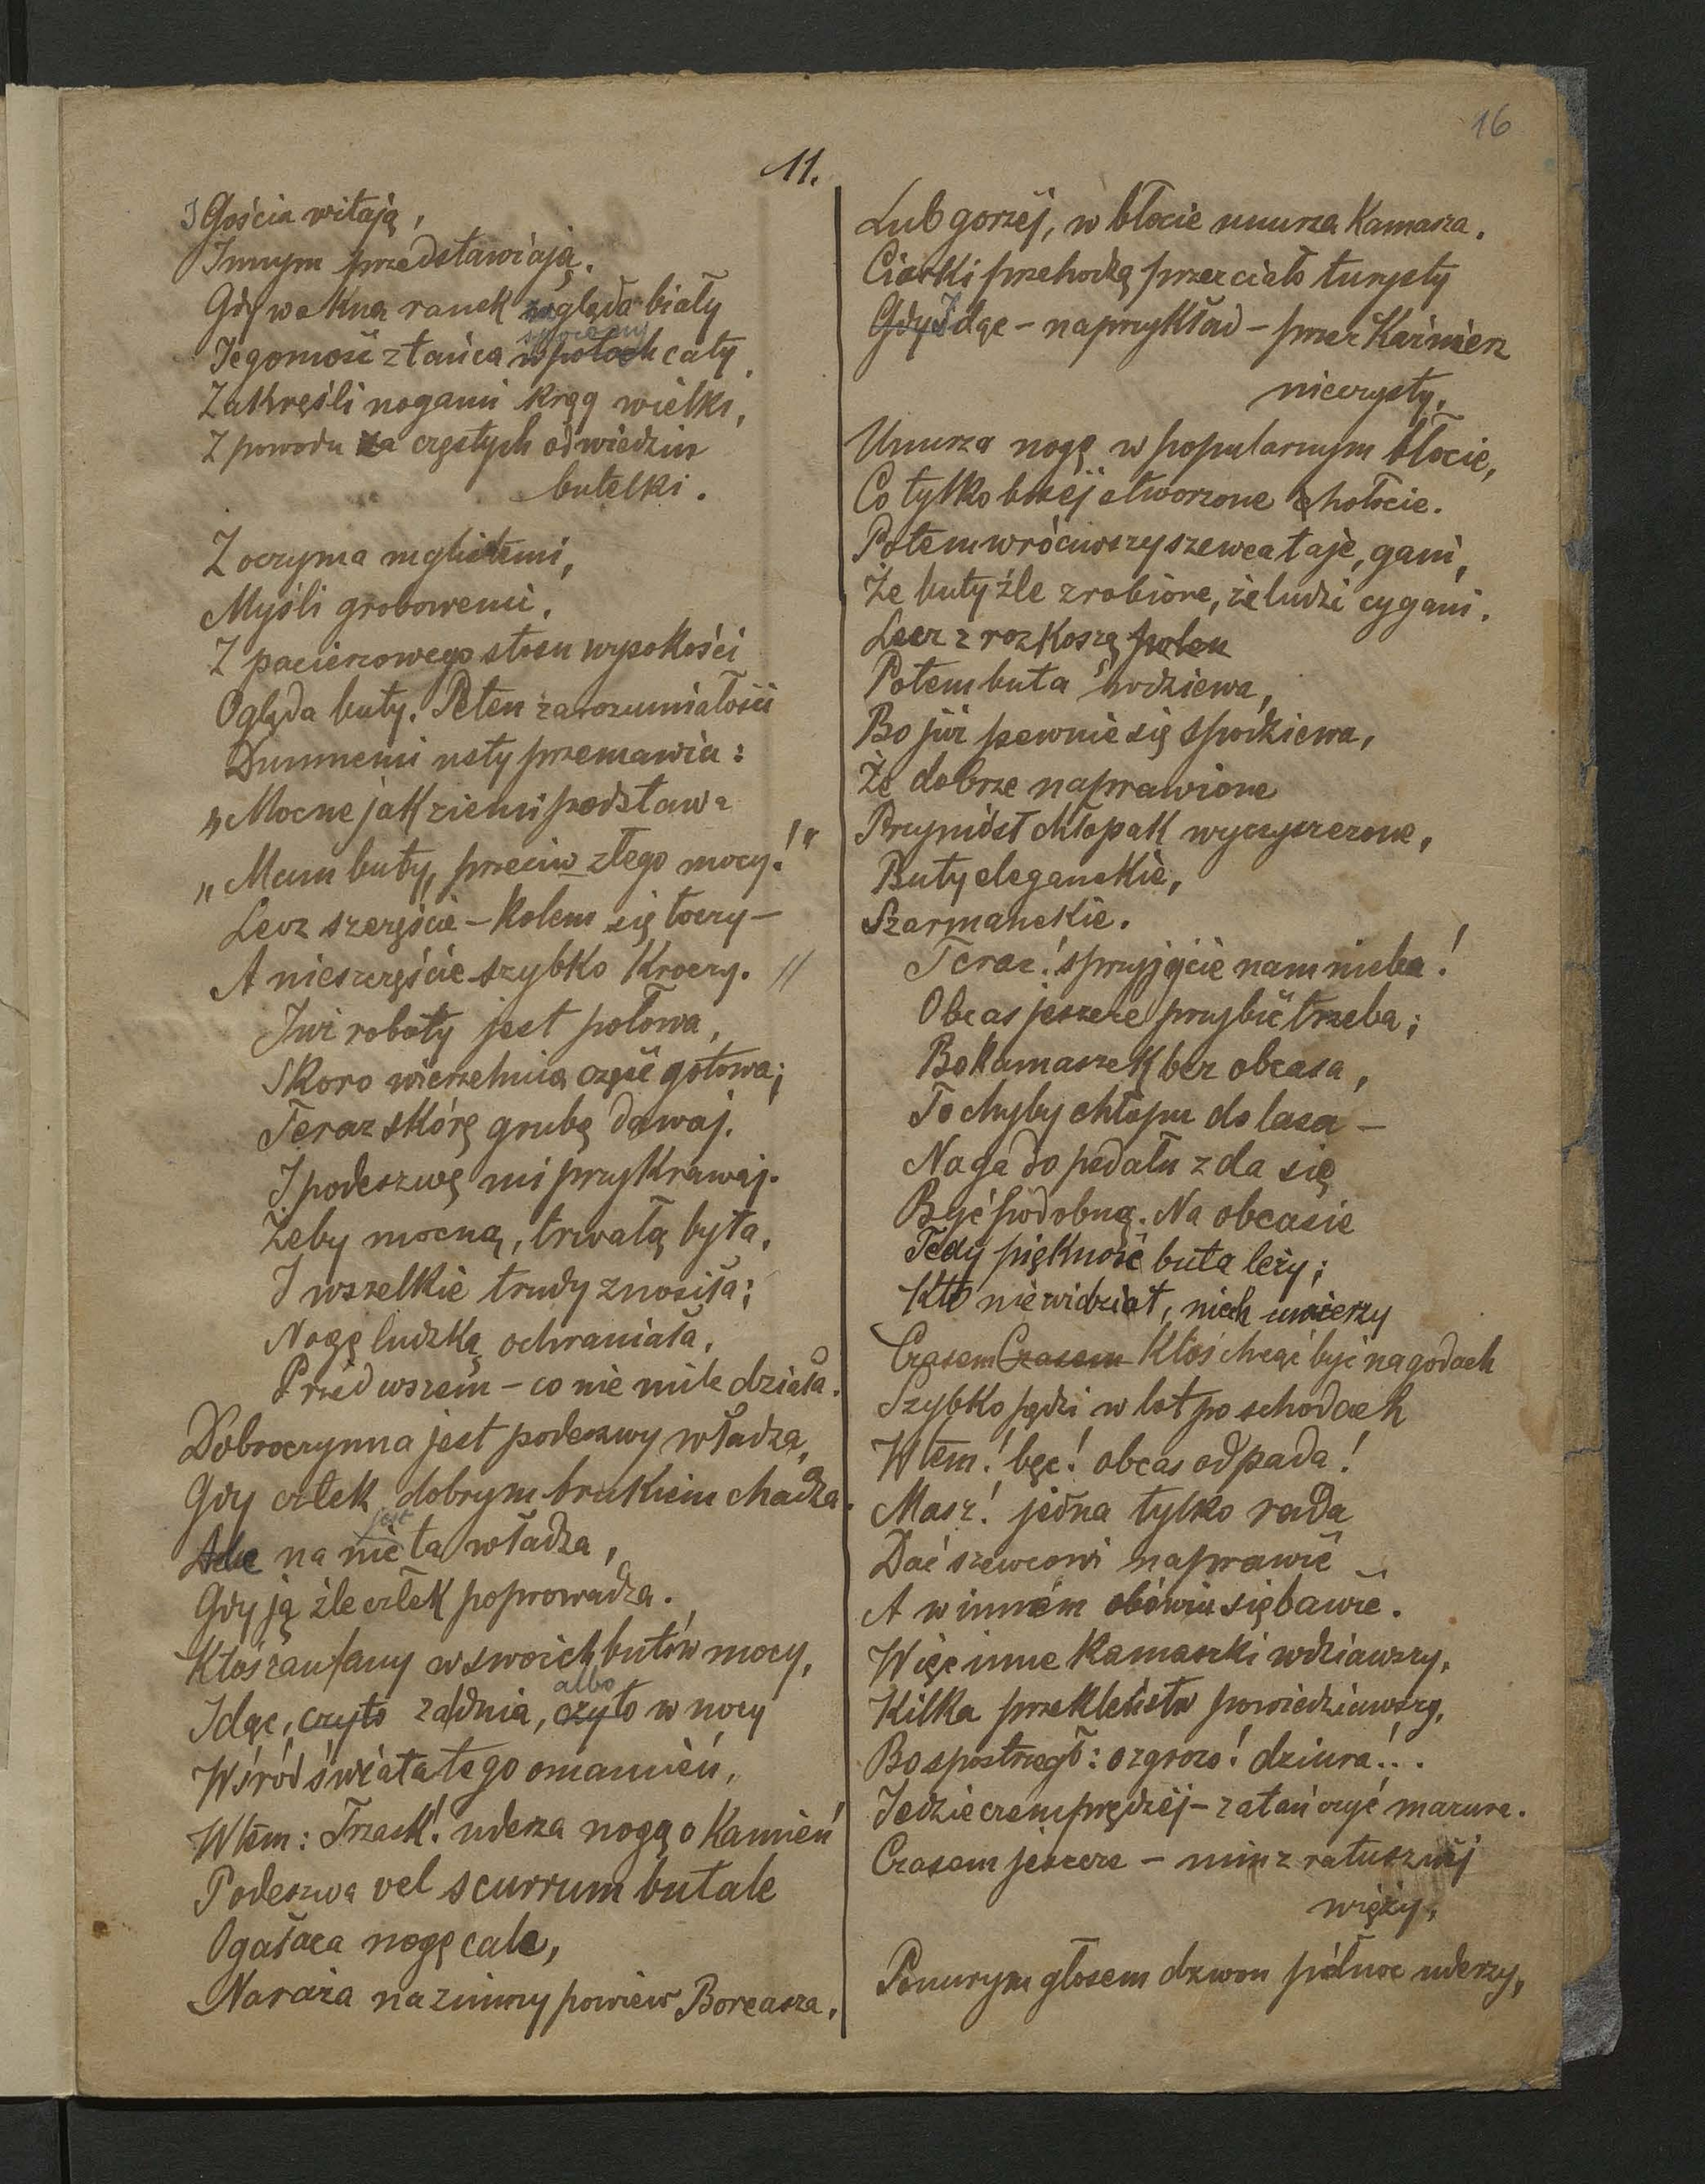 16
11.
I Gościa witają,
Innym przedstawiają.
Gdy w okna ranek zagląda biały
Jegomość z tańca spocony w potach cały,
Zakreśli nogami krąg wielki,
Z powodu za częstych odwiedzin
butelki.
Z oczyma mglistemi,
Myśli grobowemi,
Z pacierzowego stosu wysokości
Ogląda buty. Pełen zarozumiałości
Dumnemi usty przemawia:
„Mocne jak ziemi podstawa
„Mam buty, przeciw złego mocy!"
Lecz szczęście – kołem się toczy –
A nieszczęście szybko kroczy. //
Już roboty jest połowa,
Skoro wierzchnia część gotowa;
Teraz skórę grubą dawaj,
I podeszwę mi przykrawaj.
Żeby mocną, trwałą była,
I wszelkie trudy znosiła;
Nogę ludzką ochraniała,
Przed wszem – co nie mile działa.
Dobroczynna jest podeszwy władza,
Gdy człek dobrym brukiem chadza.
Ale na nic jest ta władza,
Gdy ją źle człek poprowadza.
Ktoś zaufany w swoich butów mocy,
Idąc, czyto za dnia, czyto albo w nocy
Wśród świata tego omamień,
Wtem: Trzask! uderza nogą o kamień
Podeszwa vel scurrum butale
Ogałaca nogę cale,
Naraża na zimny powiew Boreasza,
Lub gorzéj, w błocie unurza kamasza.
Ciarki przehodzą przez ciało turysty
Gdy Idąc – naprzykład – przez Kaźmierz
nieczysty,
Unurza nogę w popularnym błocie,
Co tylko brzéj otworzone hołocie.
Potem wróciwszy szewca łaje, gani,
Że buty źle zrobione, że ludzi cygani.
Lecz z rozkoszą polem
Potem buta wdziewa,
Bo już pewnie się spodziewa,
Że dobrze naprawione
Przyniósł chłopak wyczyszczone,
Buty eleganckie,
Szarmanckie.
Teraz! sprzyjcie nam nieba!
Obcas jeszcze przybić trzeba;
Bo kamaszek bez obcasa,
To chyby chłopu do lasa –
Noga do pedału zda się
Być podobną. Na obcasie
Tedy piękność buta leży;
Kto nie widział, niech uwierzy
Czasem Czasem Ktoś chcąc być na godach
Szybko pędzi w lot po schodach
Wtém! bęc! obcas odpada!
Masz! jedna tylko rada
Dać szewcowi naprawić
A w inném obówiu się bawić.
Więc inne kamaszki wdziawszy,
Kilka przekleństw powiedziawszy,
Bo spostrzegł: o zgrozo! dziura!..
Jedzie czemprędzéj – zatańczyć mazura.
Czasem jeszcze – nim z ratuszowéj
wieży,
Ponurym głosem dzwon północ uderzy,